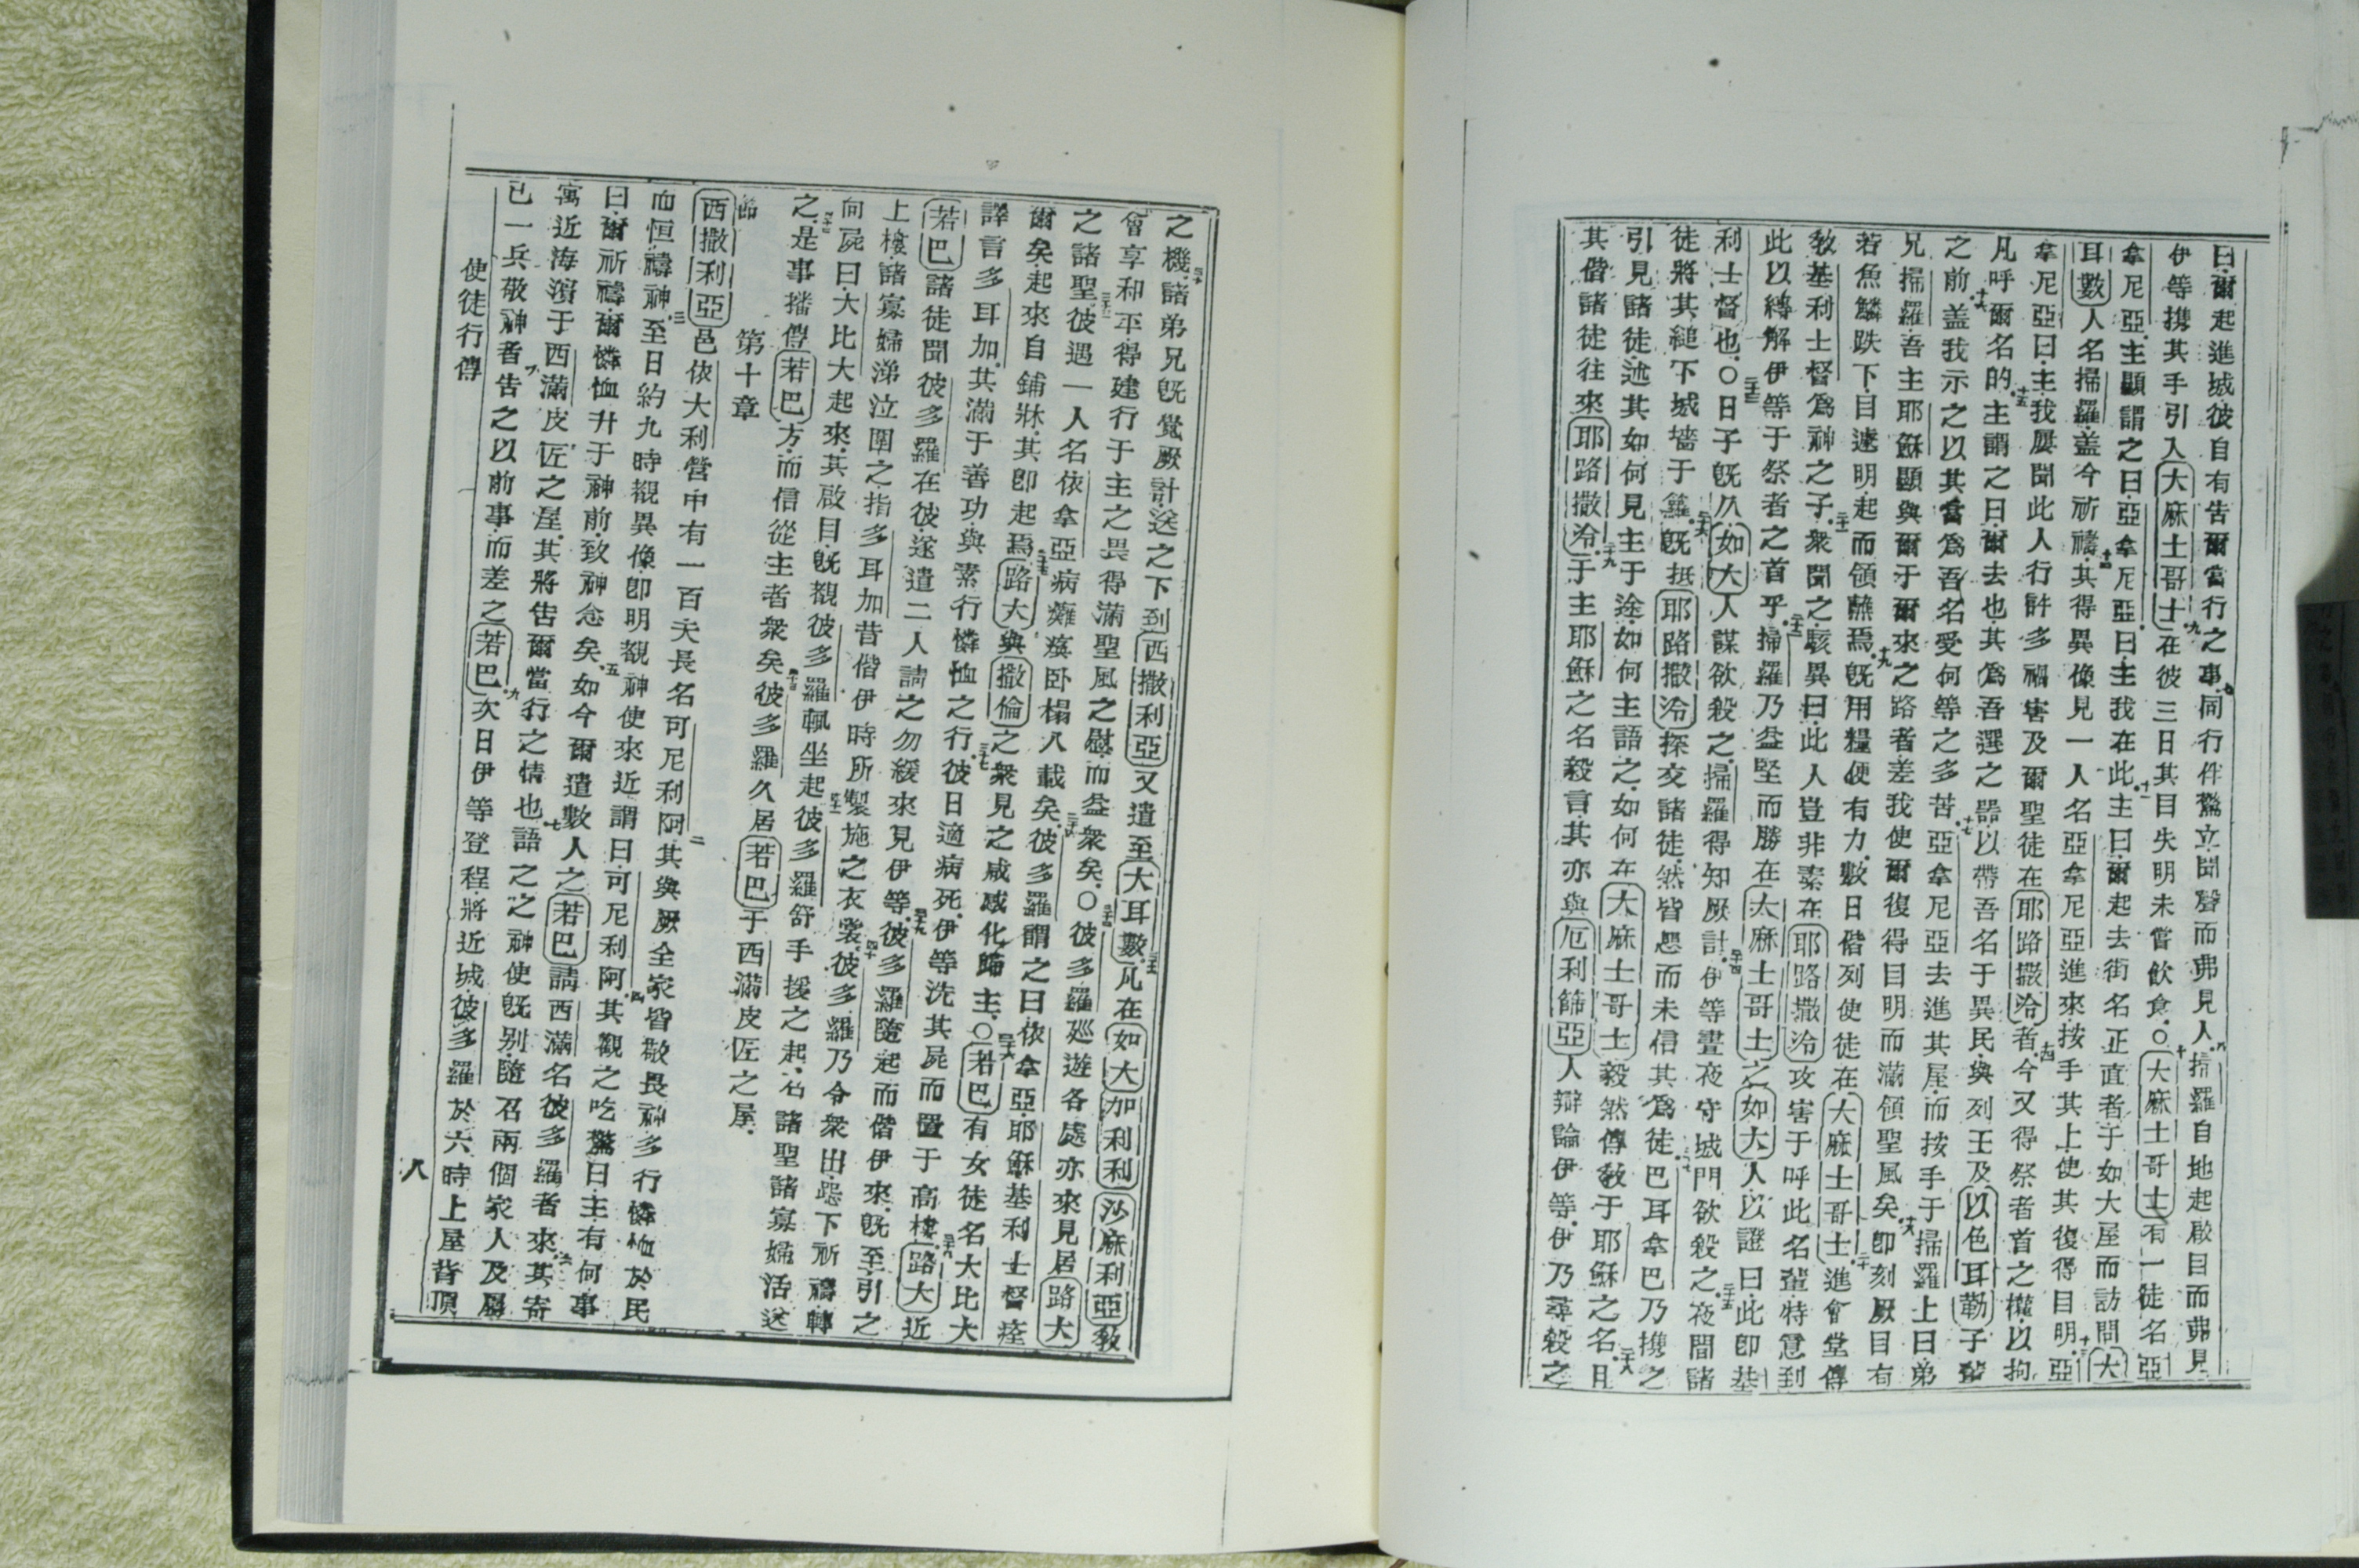 曰爾起進城彼自有告爾當行之事七同行伴驚立聞聲而弗見人八掃羅自地起啟目而弗見
伊等携其手引入大麻士哥士九在彼三日其目失明未嘗飲食〇十大麻士哥士有一徒名亞
拿尼亞主顯謂之曰亞拿尼亞曰主我在此十一主曰爾起去街名正直者于如大屋而訪問大
耳數人名掃羅盖今祈禱十二其得異像見一人名亞拿尼亞進來按手其上使其復得目明十三亞
拿尼亞曰主我屢聞此人行許多禍害及爾聖徒在耶路撒冷者十四今又得祭者首之權以拘
凡呼爾名的十五主謂之曰爾去也其為吾選之器以帶吾名于異民與列王及以色耳勒子輩
之前十六盖我示之以其當為吾名受何等之多苦十七亞拿尼亞去進其屋而按手于掃羅上曰弟
兄掃羅吾主耶穌顯與爾于爾來之路者差我使爾復得目明而滿領聖風矣十八即刻厥目有
若魚鱗跌下目遽明起而領蘸焉十九旣用糧便有力數日偕列使徒在大麻士哥士二十進會堂傳
敎基利士督為神之子二十一衆聞之駭異曰此人豈非素在耶路撒冷攻害于呼此名輩特意到
此以縛解伊等于祭者之首乎二十二掃羅乃益堅而勝在大麻士哥士之如大人以證曰此即基
利士督也〇二十三日子旣久如大人謀欲殺之掃羅得知厥計二十四伊等晝夜守城門欲殺之二十五夜間諸
徒將其縋下城墻于籮二十六旣抵耶路撒冷探交諸徒然皆懼而未信其為徒二十七巴耳拿巴乃携之
引見諸徒述其如何見主于途如何主語之如何在大麻士哥士毅然傳敎于耶穌之名二十八日
其偕諸徒往來耶路撒冷二十九于主耶穌之名毅言其亦與厄利篩亞人辯論伊等伊乃尋殺之
之機三十諸弟兄旣覺厥計送之下到西撒利亞又遣至大耳數三十一凡在如大加利利沙麻利亞敎
會享和平得建行于主之畏得滿聖風之慰而益衆矣〇三十二彼多羅廵遊各處亦來見居路大
之諸聖三十三彼遇一人名依拿亞病癱瘓卧榻八載矣三十四彼多羅謂之曰依拿亞耶穌基利士督痊
爾矣起來自鋪牀其即起焉三十五路大與撒倫之衆見之咸感化歸主〇三十六若巴有女徒名大比大
譯言多耳加其滿于善功與素行憐恤之行三十七彼日適病死伊等洗其屍而置于高樓三十八路大近
若巴諸徒聞彼多羅在彼遂遣二人請之勿緩來見伊等三十九彼多羅隨起而偕伊來旣至引之
上樓諸寡婦涕泣圍之指多耳加昔偕伊時所製施之衣裳四十彼多羅乃令衆出跪下祈禱轉
向屍曰大比大起來其啟目旣覩彼多羅輒坐起四十一彼多羅舒手援之起召諸聖諸寡婦活送
之四十二是事播徧若巴方而信從主者衆矣四十三彼多羅久居若巴于西滿皮匠之屋
第十章
節
西撒利亞邑依大利營中有一百夫長名可尼利阿二其與厥全家皆敬畏神多行憐恤於民
而恒禱神三至日約九時覩異像即明覩神使來近謂曰可尼利阿四其觀之吃驚曰主有何事
曰爾祈禱爾憐恤升于神前致神念矣五如今爾遣數人之若巴請西滿名彼多羅者來六其寄
寓近海濱于西滿皮匠之屋其將告爾當行之情也七語之之神使旣别隨召兩個家人及屬
己一兵敬神者八告之以前事而差之若巴九次日伊等登程將近城彼多羅於六時上屋背頂
使徒行傳
八